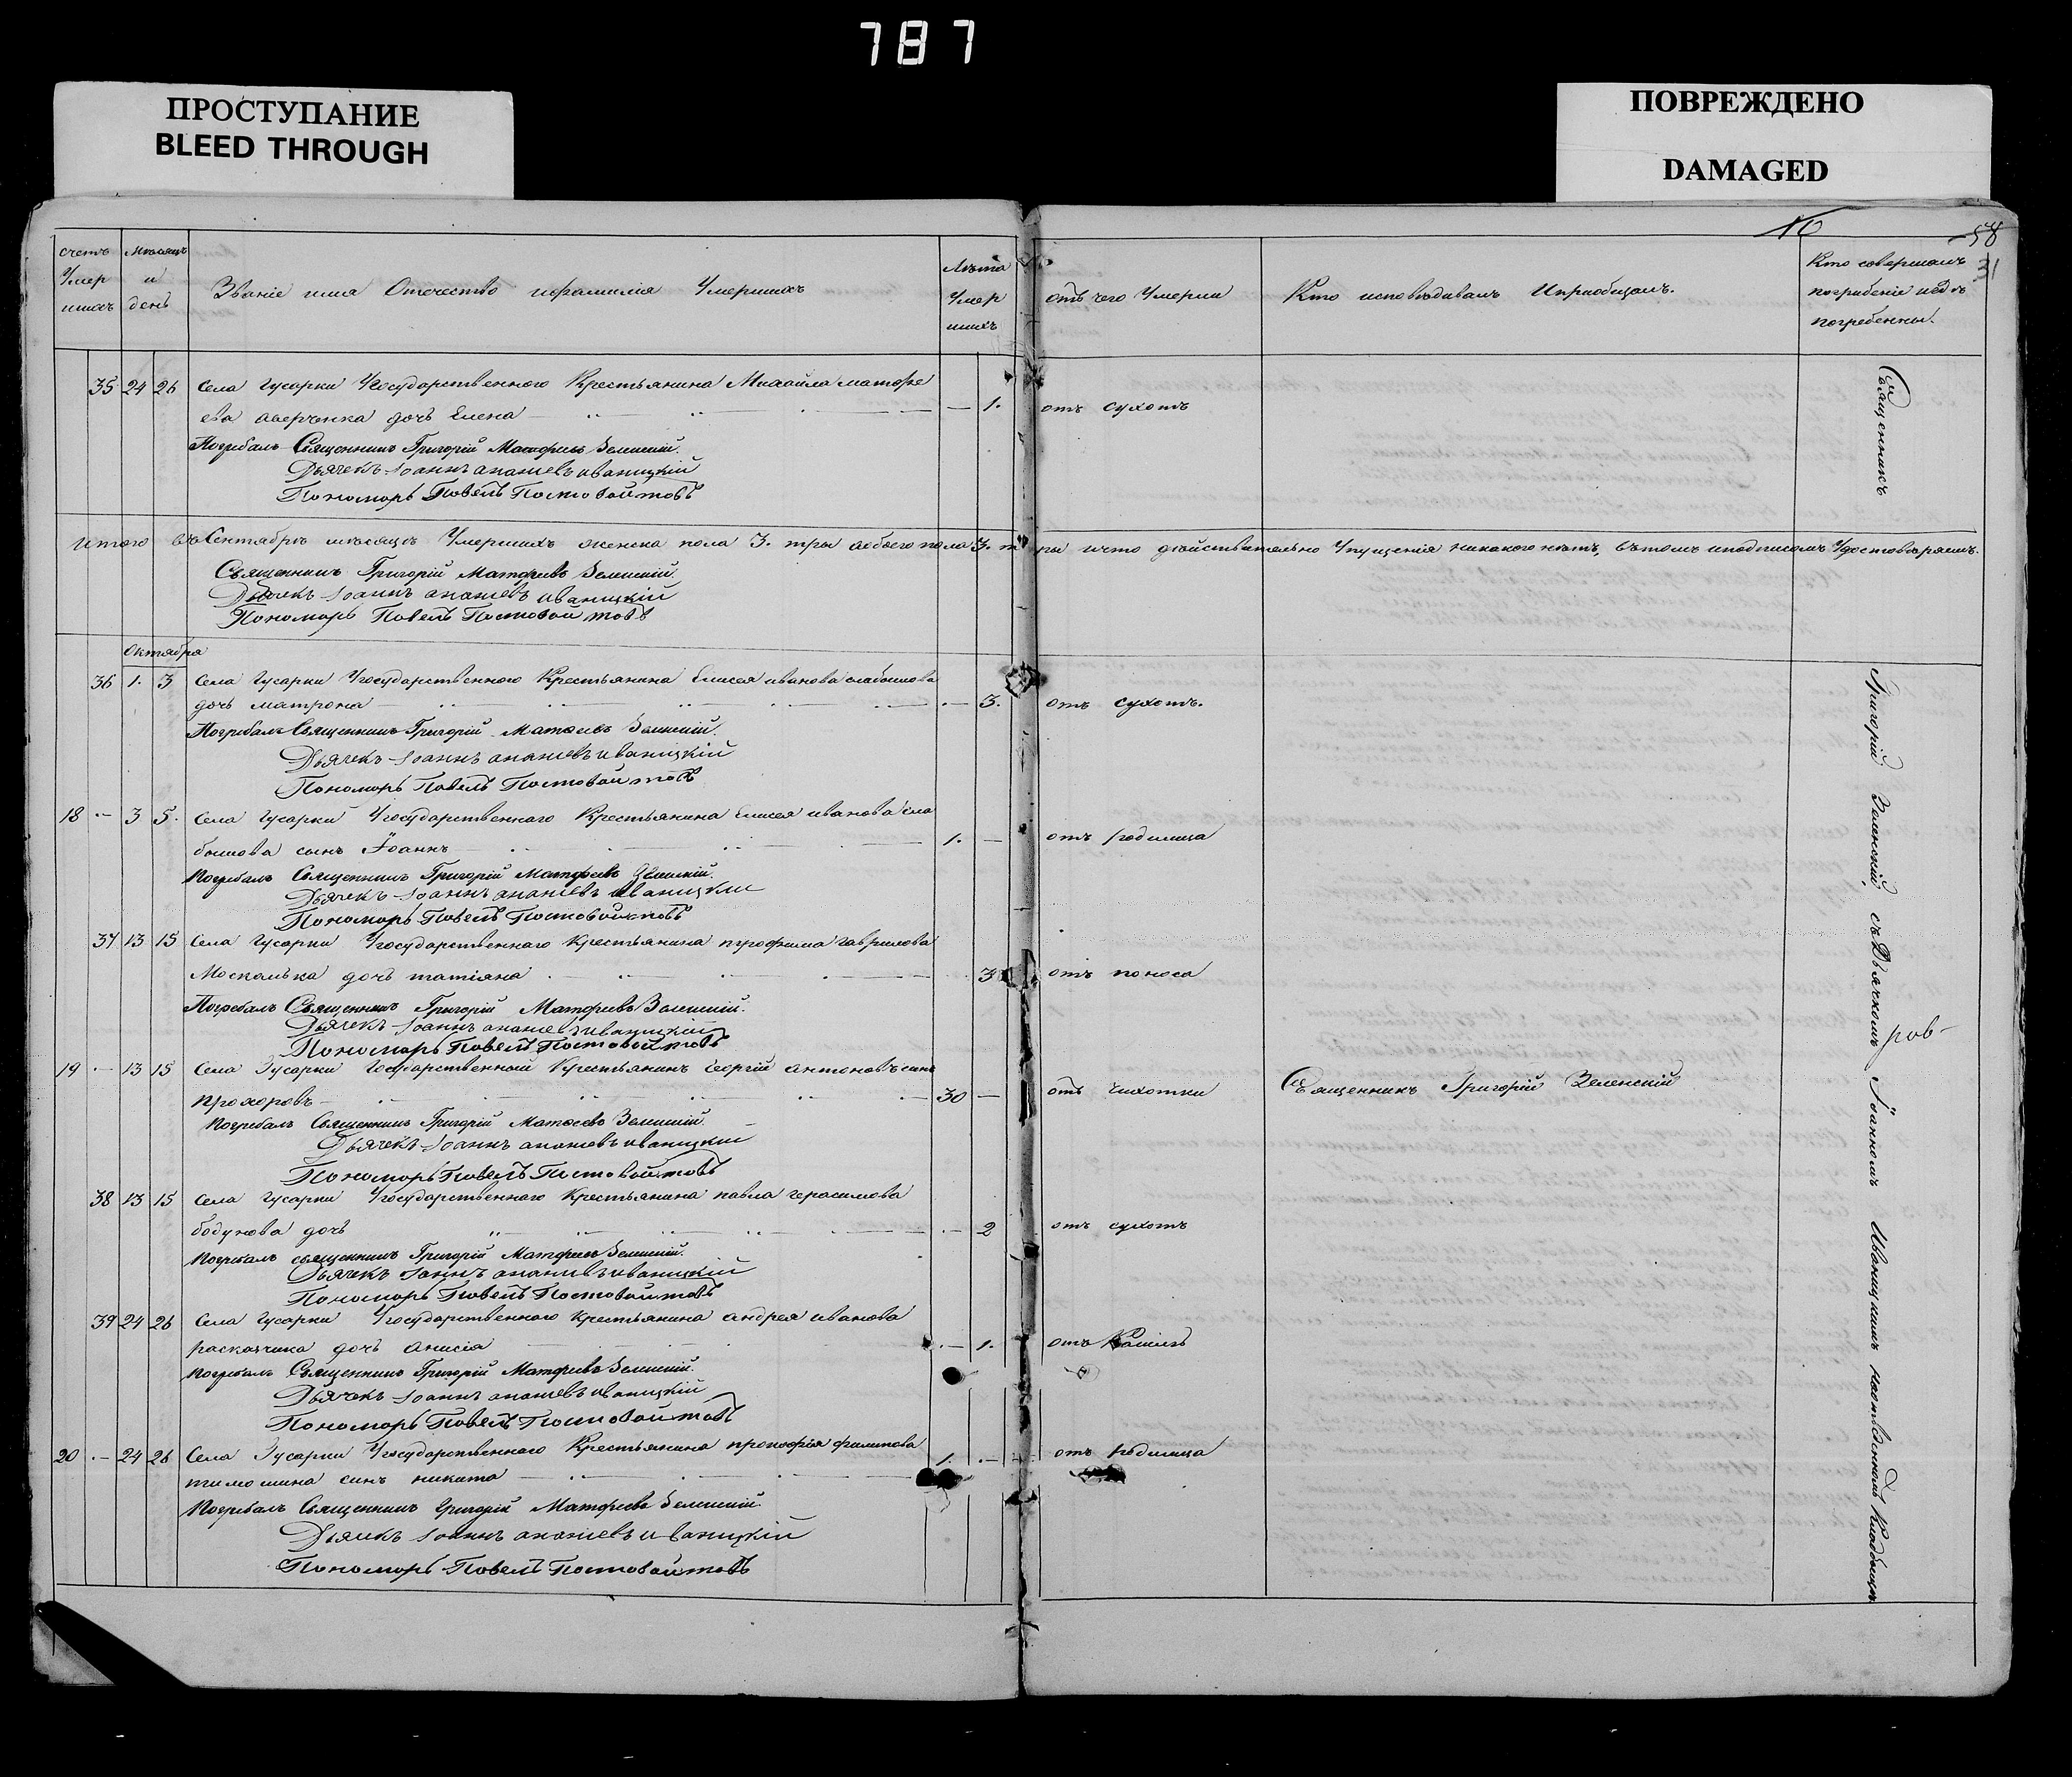 787
ПРОСТУПАНИЕ
BLEED THROUGH
ПОВРЕЖДЕНО
DAMAGED
10
58
31
счетъ Умер шихъ
Мѣсяцъ и день
Званіе имя Отечество и фамилія Умершихъ
Лѣта Умер шихъ
отъ чего Умерли
Кто исповѣдывалъ и приобщалъ.
Кто совершалъ погребеніе и гдѣ погребенны.
35 24 26 Села Гусарки Государственного Крестьянина Михайла матфе
ева аверченка дочь Елена — 1. отъ сухотъ
Погребалъ Священникъ Григорій Матфиевъ Зеленскій.
Дьячекъ Іоаннъ ананіевъ иваницкій
Пономарь Павелъ Постовойтовъ
Итого въ Сентябрѣ мѣсяцѣ Умершихъ женска пола 3. три а обоего пола 3. три и что дѣйствительно Упущенія никакого нѣтъ, въ томъ и подписомъ Удостовѣряемъ.
Священникъ Григорій Матфиевъ Зеленскій
Дьячекъ Іоаннъ ананіевъ иваницкій
Пономарь Павелъ Постовойтовъ
Октября
36 1. 3 Села Гусарки Государственного Крестьянина Елисея иванова слабошова
дочь матрона — 3. отъ сухотъ.
Погребалъ Священникъ Григорій Матфеевъ Зеленскій.
Дьячекъ Іоаннъ ананіевъ иваницкій
Пономарь Павелъ Постовойтовъ
18 — 3 5. Села Гусарки Государственнаго Крестьянина Елисея иванова сла
бошова сынъ Іоаннъ 1. — отъ родимца
Погребалъ Священникъ Григорій Матфеевъ Зеленскій.
Дьячекъ Іоаннъ ананіевъ иваницкій
Пономарь Павелъ Постовойтовъ
37 13 15 Села Гусарки Государственнаго крестьянина трофима гаврилова
Москалька дочь татіяна 3 отъ поноса
Погребалъ Священникъ Григорій Матфиевъ Зеленскій.
Дьячекъ Іоаннъ ананіевъ иваницкій
Пономарь Павелъ Постовойтовъ
19 — 13 15 Села Гусарки Государственный Крестьянинъ Георгій антоновъ сынъ
прохоровъ 30 — отъ чихотки Священникъ Григорій Зеленскій
Погребалъ Священникъ Григорій Матфеевъ Зеленскій.
Дьячекъ Іоаннъ ананіевъ иваницкій
Пономарь Павелъ Постовойтовъ
38 13 15 Села Гусарки Государственнаго Крестьянина павла герасимова
бодунова дочь — 2 отъ сухотъ
Погребалъ священникъ Григорій Матфиевъ Зеленскій.
Дьячекъ Іоаннъ ананіевъ иваницкій
Пономарь Павелъ Постовойтовъ
39 24 26 Села Гусарки Государственного крестьянина андрея иванова
расказчика дочь анисія — 1. отъ Кашлѣ
Погребалъ Священникъ Григорій Матфиевъ Зеленскій.
Дьячекъ Іоаннъ ананіевъ иваницкій
Пономарь Павелъ Постовойтовъ
20 — 24 26 Села Гусарки Государственнаго Крестьянина прокофія филипова
тимошина синъ никита 1. — отъ родимца
Погребалъ Священникъ Григорій Матфиевъ Зеленскій
Дьячекъ Іоаннъ ананіевъ иваницкій
Пономарь Павелъ Постовойтовъ
Священникъ Григорій Зеленскій съ Дьячкомъ Іоанномъ Иваницкимъ